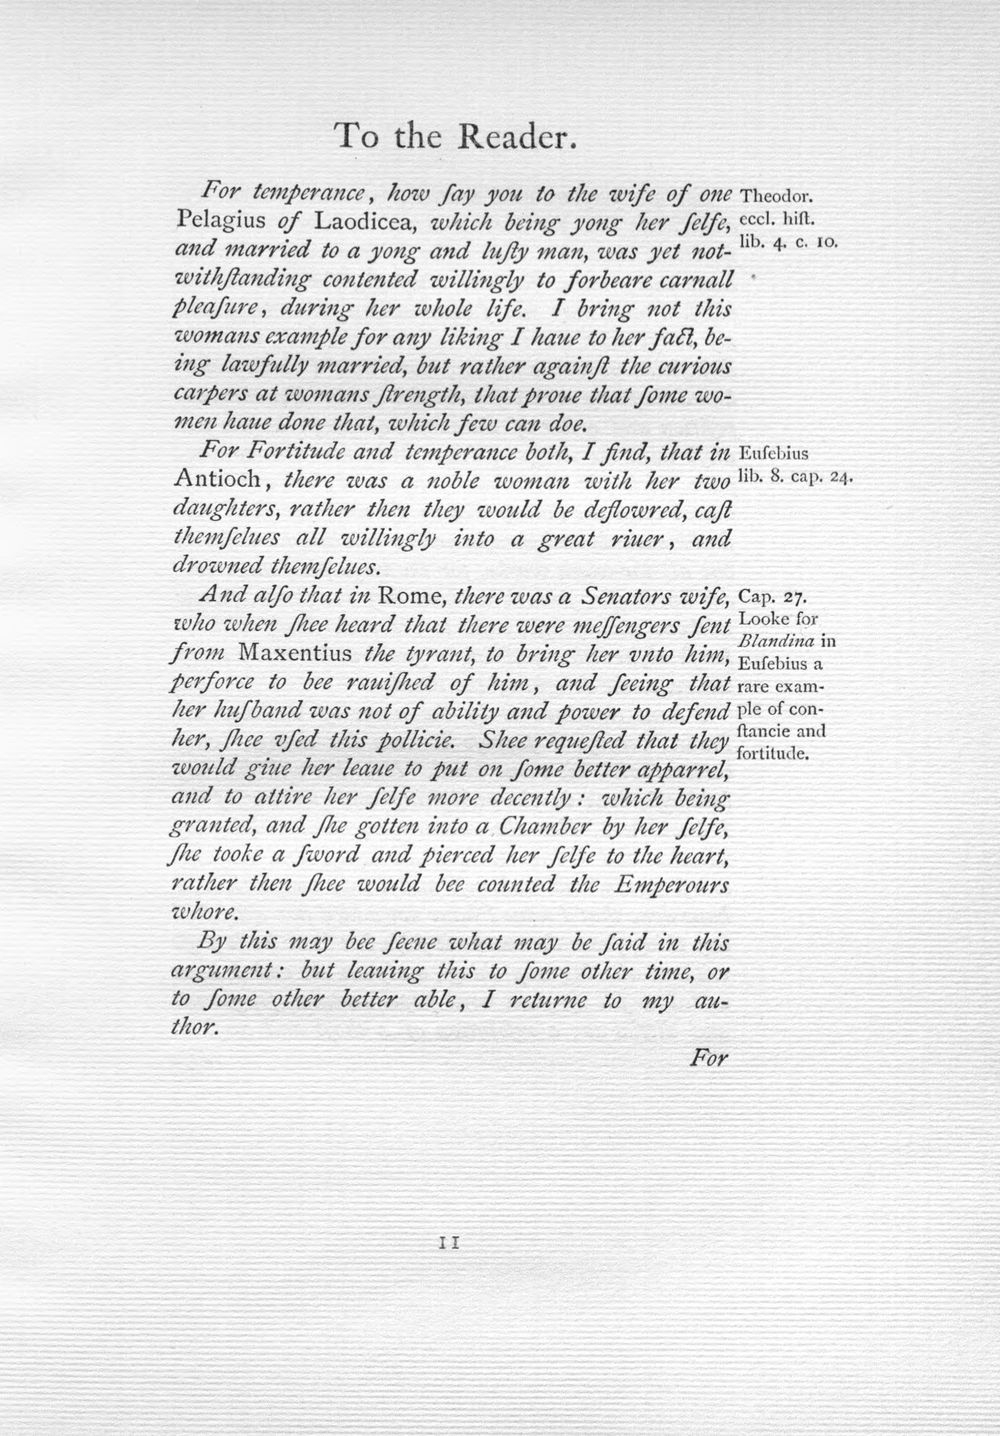 To the Reader.
For temperance, how ſay you to the wife of one
Pelagius of Laodicea, which being yong her ſelfe,
and married to a yong and luſty man, was yet not-
withſtanding contented willingly to forbeare carnall
pleaſure, during her whole life. I bring not this
womans example for any liking I haue to her fact, be-
ing lawfully married, but rather againſt the curious
carpers at womans ſtrength, that proue that ſome wo-
men haue done that, which few can doe.
Theodor.
eccl. hiſt.
lib. 4. c. 10.
For Fortitude and temperance both, I find, that in
Antioch, there was a noble woman with her two
daughters, rather then they would be deflowred, caſt
themſelues all willingly into a great riuer, and
drowned themſelues.
Euſebius
lib. 8. cap. 24.
And alſo that in Rome, there was a Senators wife,
who when ſhee heard that there were meſſengers ſent
from Maxentius the tyrant, to bring her vnto him,
perforce to bee rauiſhed of him, and ſeeing that
her huſband was not of ability and power to defend
her, ſhee vſed this pollicie. Shee requeſted that they
would giue her leaue to put on ſome better apparrel,
and to attire her ſelfe more decently: which being
granted, and ſhe gotten into a Chamber by her ſelfe,
ſhe tooke a ſword and pierced her ſelfe to the heart,
rather then ſhee would bee counted the Emperours
whore.
Cap. 27.
Looke for
Blandina in
Euſebius a
rare exam-
ple of con-
ſtancie and
fortitude.
By this may bee ſeene what may be ſaid in this
argument: but leauing this to ſome other time, or
to ſome other better able, I returne to my au-
thor.
For
11